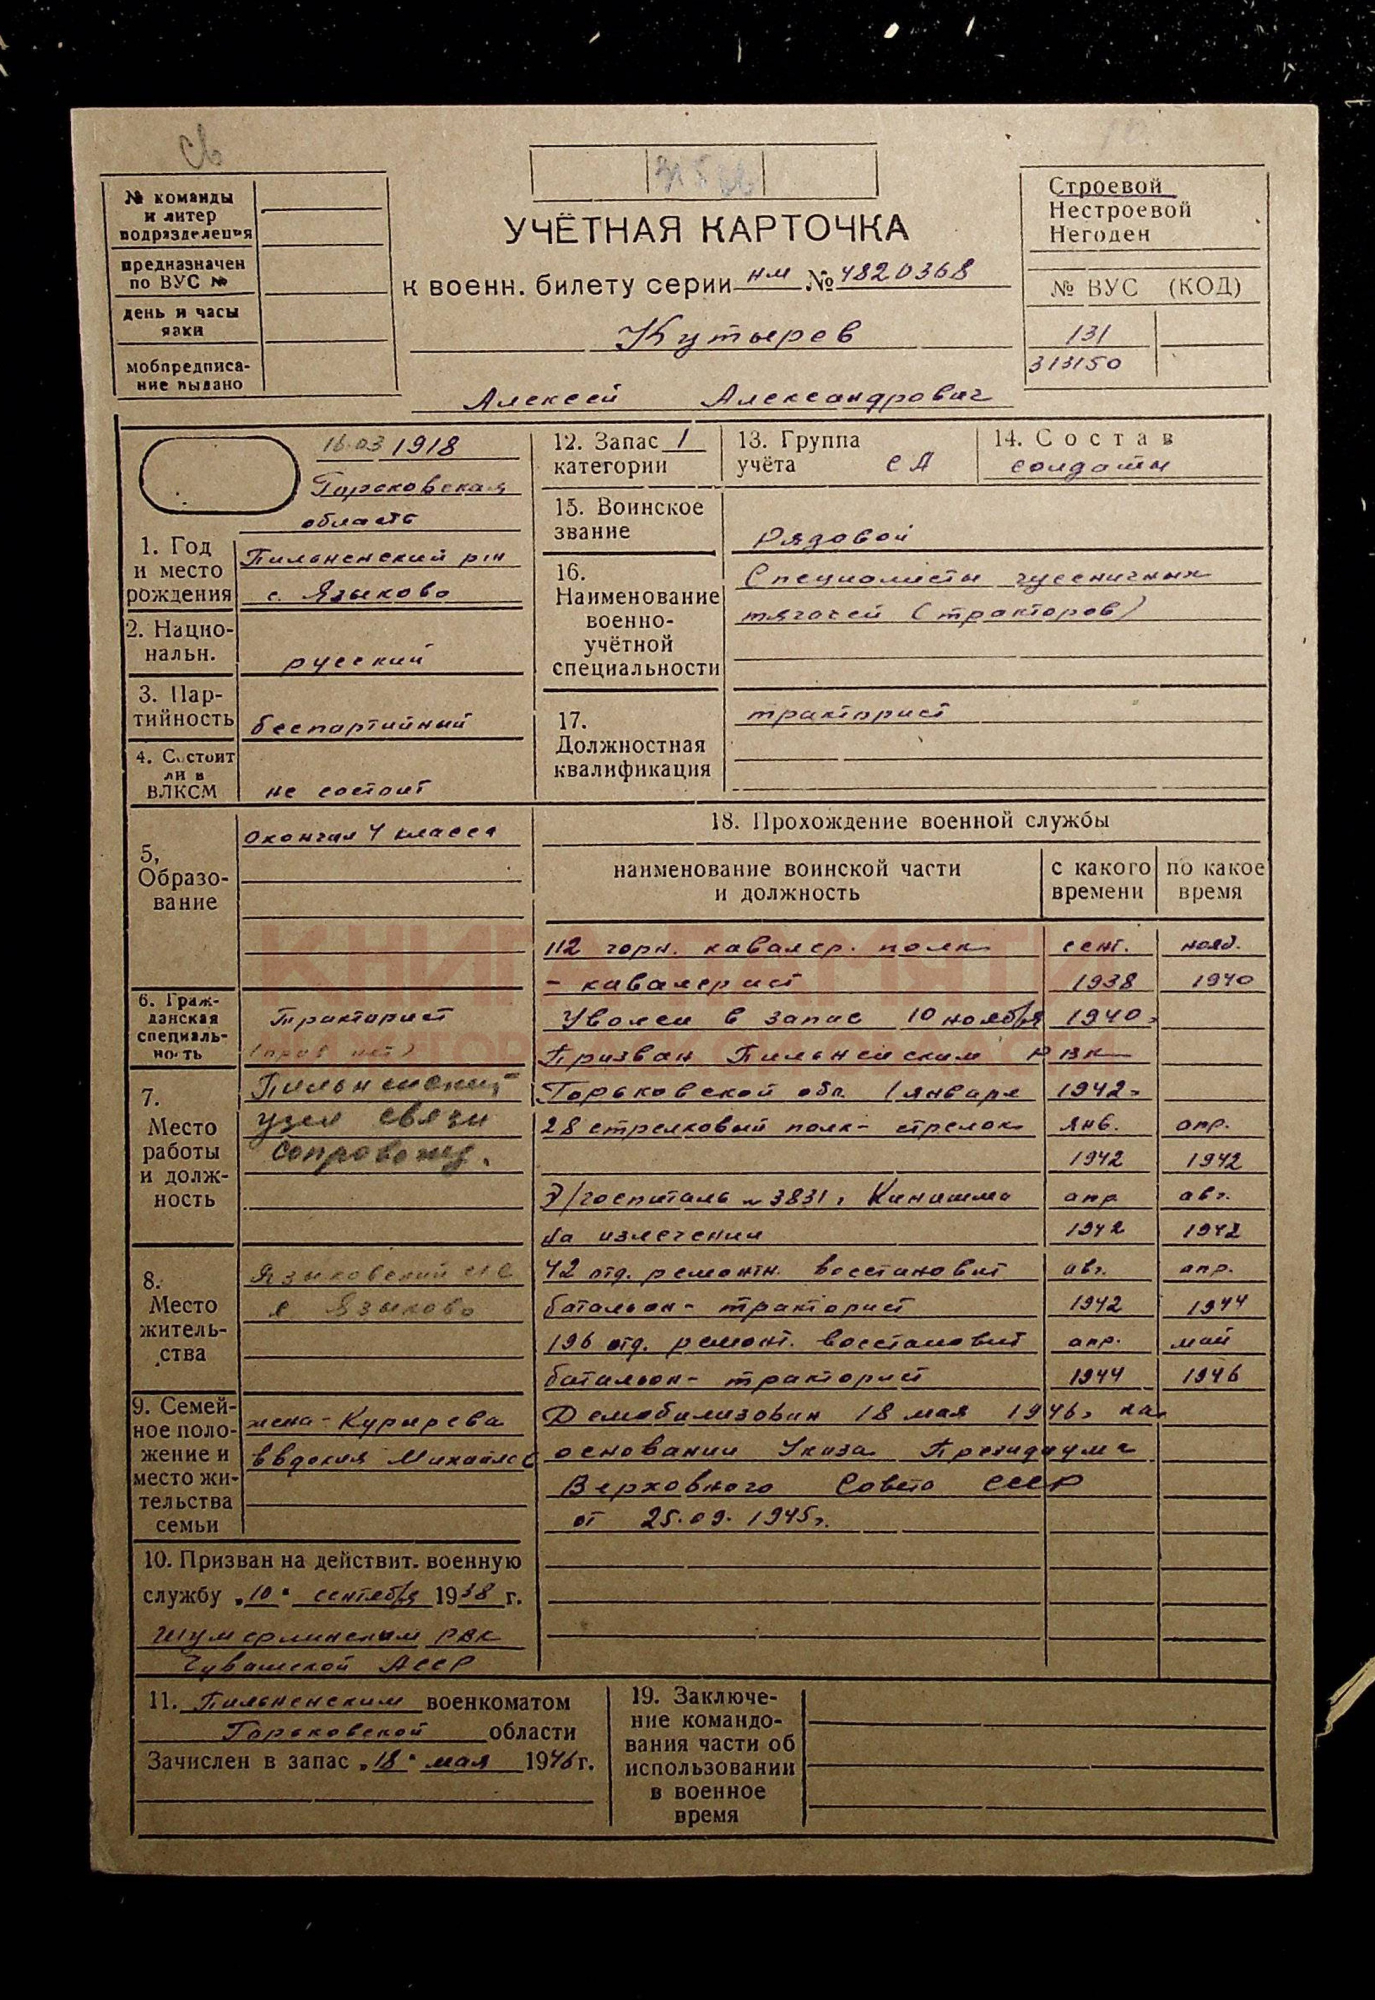 св
№ команды
и литер
подразделения
предназначен
по ВУС №
день и часы
явки
мобпредписа-
ние выдано
УЧЁТНАЯ КАРТОЧКА
к военн. билету серии нм № 4820368
Кутырев
Алексей Александрович
Строевой
Нестроевой
Негоден
№ ВУС (КОД)
131
313150
16.03 1918
Горьковская
область
1. Год
и место
рождения
Пильненский р-н
с. Языково
2. Нацио-
нальн.
русский
3. Пар-
тийность
беспартийный
4. Состоит
ли в
ВЛКСМ
не состоит
12. Запас 1
категории
13. Группа
учёта СА
14. Состав
солдаты
15. Воинское
звание
Рядовой
16.
Наименование
военно-
учётной
специальности
Специалисты гусеничных
тягачей (тракторов)
17.
Должностная
квалификация
тракторист
5,
Образо-
вание
Окончил 4 класса
6. Граж-
данская
специаль-
ность
Тракторист
(прав нет)
7.
Место
работы
и долж-
ность
Пильненский
узел связи
сопровожд.
8.
Место
житель-
ства
Языковский с/с
с Языково
9. Семей-
ное поло-
жение и
место жи-
тельства
семьи
жена - Курырева
Евдокия Михайлов
10. Призван на действит. военную
службу „10" сентября 1938 г.
Шумерлинским РВК
Чувашской АССР
18. Прохождение военной службы
наименование воинской части
и должность
с какого
времени
по какое
время
112 горн. кавалер. полк сент. нояб.
- кавалерист 1938 1940
Уволен в запас 10 ноября 1940г
Призван Пильненским РВК
Горьковской обл. 1 января 1942г
28 стрелковый полк - стрелок янв. апр.
1942 1942
Э/госпиталь № 3831 г Кинишма апр авг.
на излечении 1942 1942
42 отд. ремонтн. восстановит авг. апр.
батальон - тракторист 1942 1944
196 отд. ремонт. восстановит апр. май
батальон - тракторист 1944 1946
Демобилизован 18 мая 1946г на
основании Указа Президиума
Верховного Совета СССР
от 25.09.1945г.
11. Пильненским военкоматом
Горьковской области
Зачислен в запас „18" мая 1946 г.
19. Заключе-
ние командо-
вания части об
использовании
в военное
время
КНИГА ПАМЯТИ
НИЖЕГОРОДСКОЙ ОБЛАСТИ